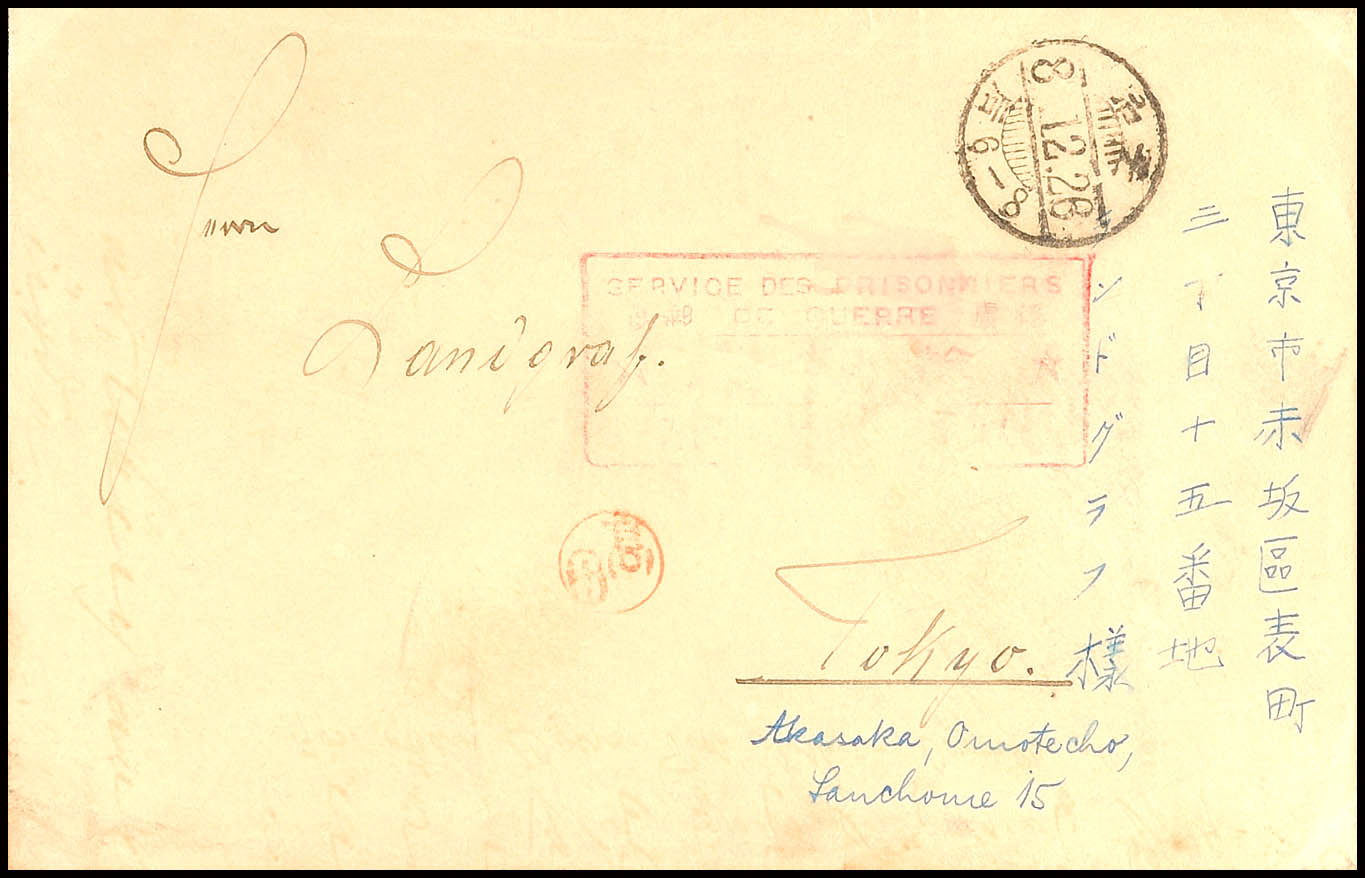 Herrn
Landgraf.
SERVICE DES PRISONNIERS
郵 DE GUERRE
8
12.28
6-8
Tokyo.
Akasaka, Omotecho,
Sanchome 15
東京市赤坂區表町
三丁目十五番地
ンドグラフ様